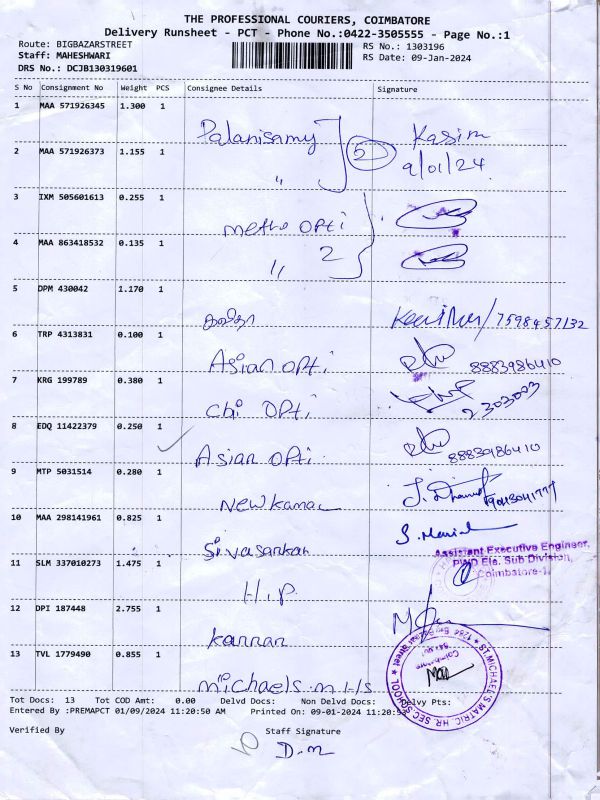 THE PROFESSIONAL COURIERS, COIMBATORE
Delivery Runsheet - PCT - Phone No.:0422-3505555 - Page No.:1
Route: BIGBAZARSTREET
Staff: MAHESHWARI
DRS No.: DCJB130319601
RS No.: 1303196
RS Date: 09-Jan-2024
S No Consignment No Weight PCS Consignee Details Signature
1 MAA 571926345 1.300 1 Palanisamy Kasim
2 MAA 571926373 1.155 1 " 9/01/24
3 IXM 505601613 0.255 1 metro opti
4 MAA 863418532 0.135 1 " 2
5 DPM 430042 1.170 1 7598457132
6 TRP 4313831 0.100 1 Asian opti 8883986410
7 KRG 199789 0.380 1 Chi opti 2303003
8 EDQ 11422379 0.250 1 Asian opti 8883986410
9 MTP 5031514 0.280 1 New kamal
10 MAA 298141961 0.825 1 Sivasankar
Assistant Executive Engineer,
PWD Ele. Sub Division,
Coimbatore-1.
11 SLM 337010273 1.475 1 H.P
12 DPI 187448 2.755 1 kannan
13 TVL 1779490 0.855 1 michaels m H/s
ST.MICHAEL'S MATRIC. HR. SEC. SCHOOL
Coimbatore
Tot Docs: 13 Tot COD Amt: 0.00 Delvd Docs: Non Delvd Docs: Delvy Pts:
Entered By :PREMAPCT 01/09/2024 11:20:50 AM Printed On: 09-01-2024 11:20:53
Verified By Staff Signature
D.m